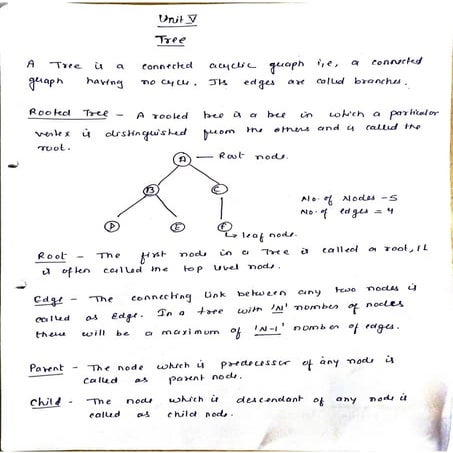 Unit V
Tree
A Tree is a connected acyclic graph i,e, a connected
graph having no cycle. Its edges are called branches.
Rooted Tree - A rooted tree is a tree in which a particular
vertex is distinguished from the others and is called the
root.
A — Root node.
B C
No. of Nodes - 5
No. of edges = 4
D E F
↳ leaf node.
Root - The first node in a Tree is called a root, It
is often called the top level node.
Edge - The connecting link between any two nodes is
called as Edge. In a tree with 'N' number of nodes
there will be a maximum of 'N-1' number of edges.
Parent - The node which is predecessor of any node is
called as parent node.
Child - The node which is descendant of any node is
called as child node.